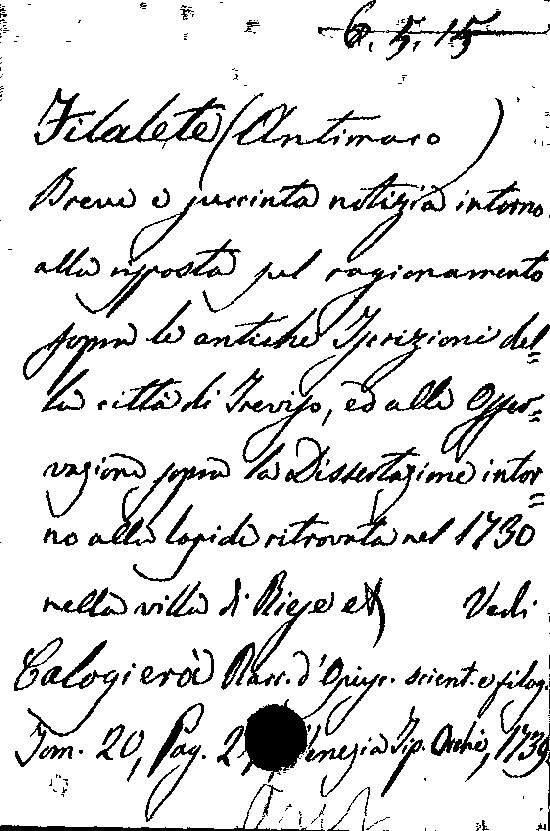 6. 5. 15
Filalete (Antimaco)
Breve e succinta notizia intorno
alla risposta sul ragionamento
sopra le antiche Iscrizioni del=
la città di Treviso, ed alle Osser=
vazioni sopra la Dissertazione intor=
no alla lapide ritrovata nel 1730
nella villa di Riese Vedi
Calogierà Racc. d'Opusc. scient. e filog.
Tom. 20, Pag. Venezia Tip. 1739